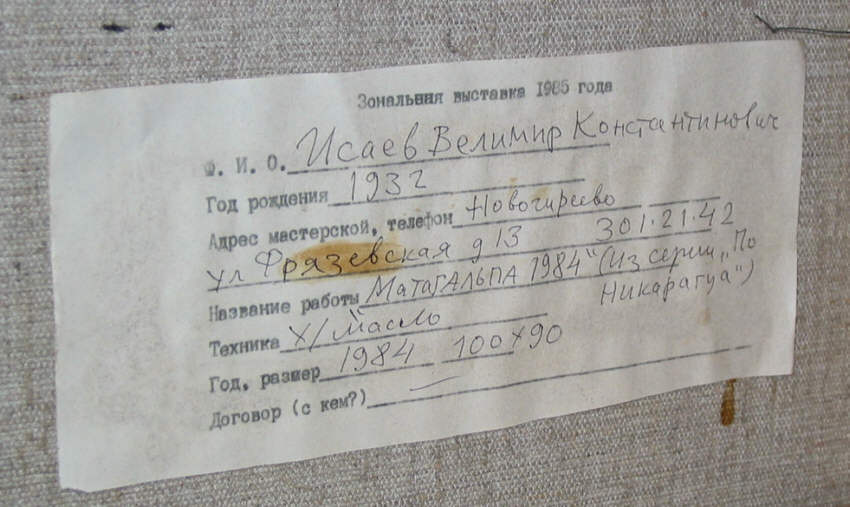 Зональная выставка 1985 года
Ф. И. О. Исаев Велимир Константинович
Год рождения 1932
Адрес мастерской, телефон Новогиреево
ул Фрязевская д 13 301.21.42
Название работы Матагальпа 1984" (Из серии „По
Никарагуа")
Техника Х/масло
Год, размер 1984 100х90
Договор (с кем?) —